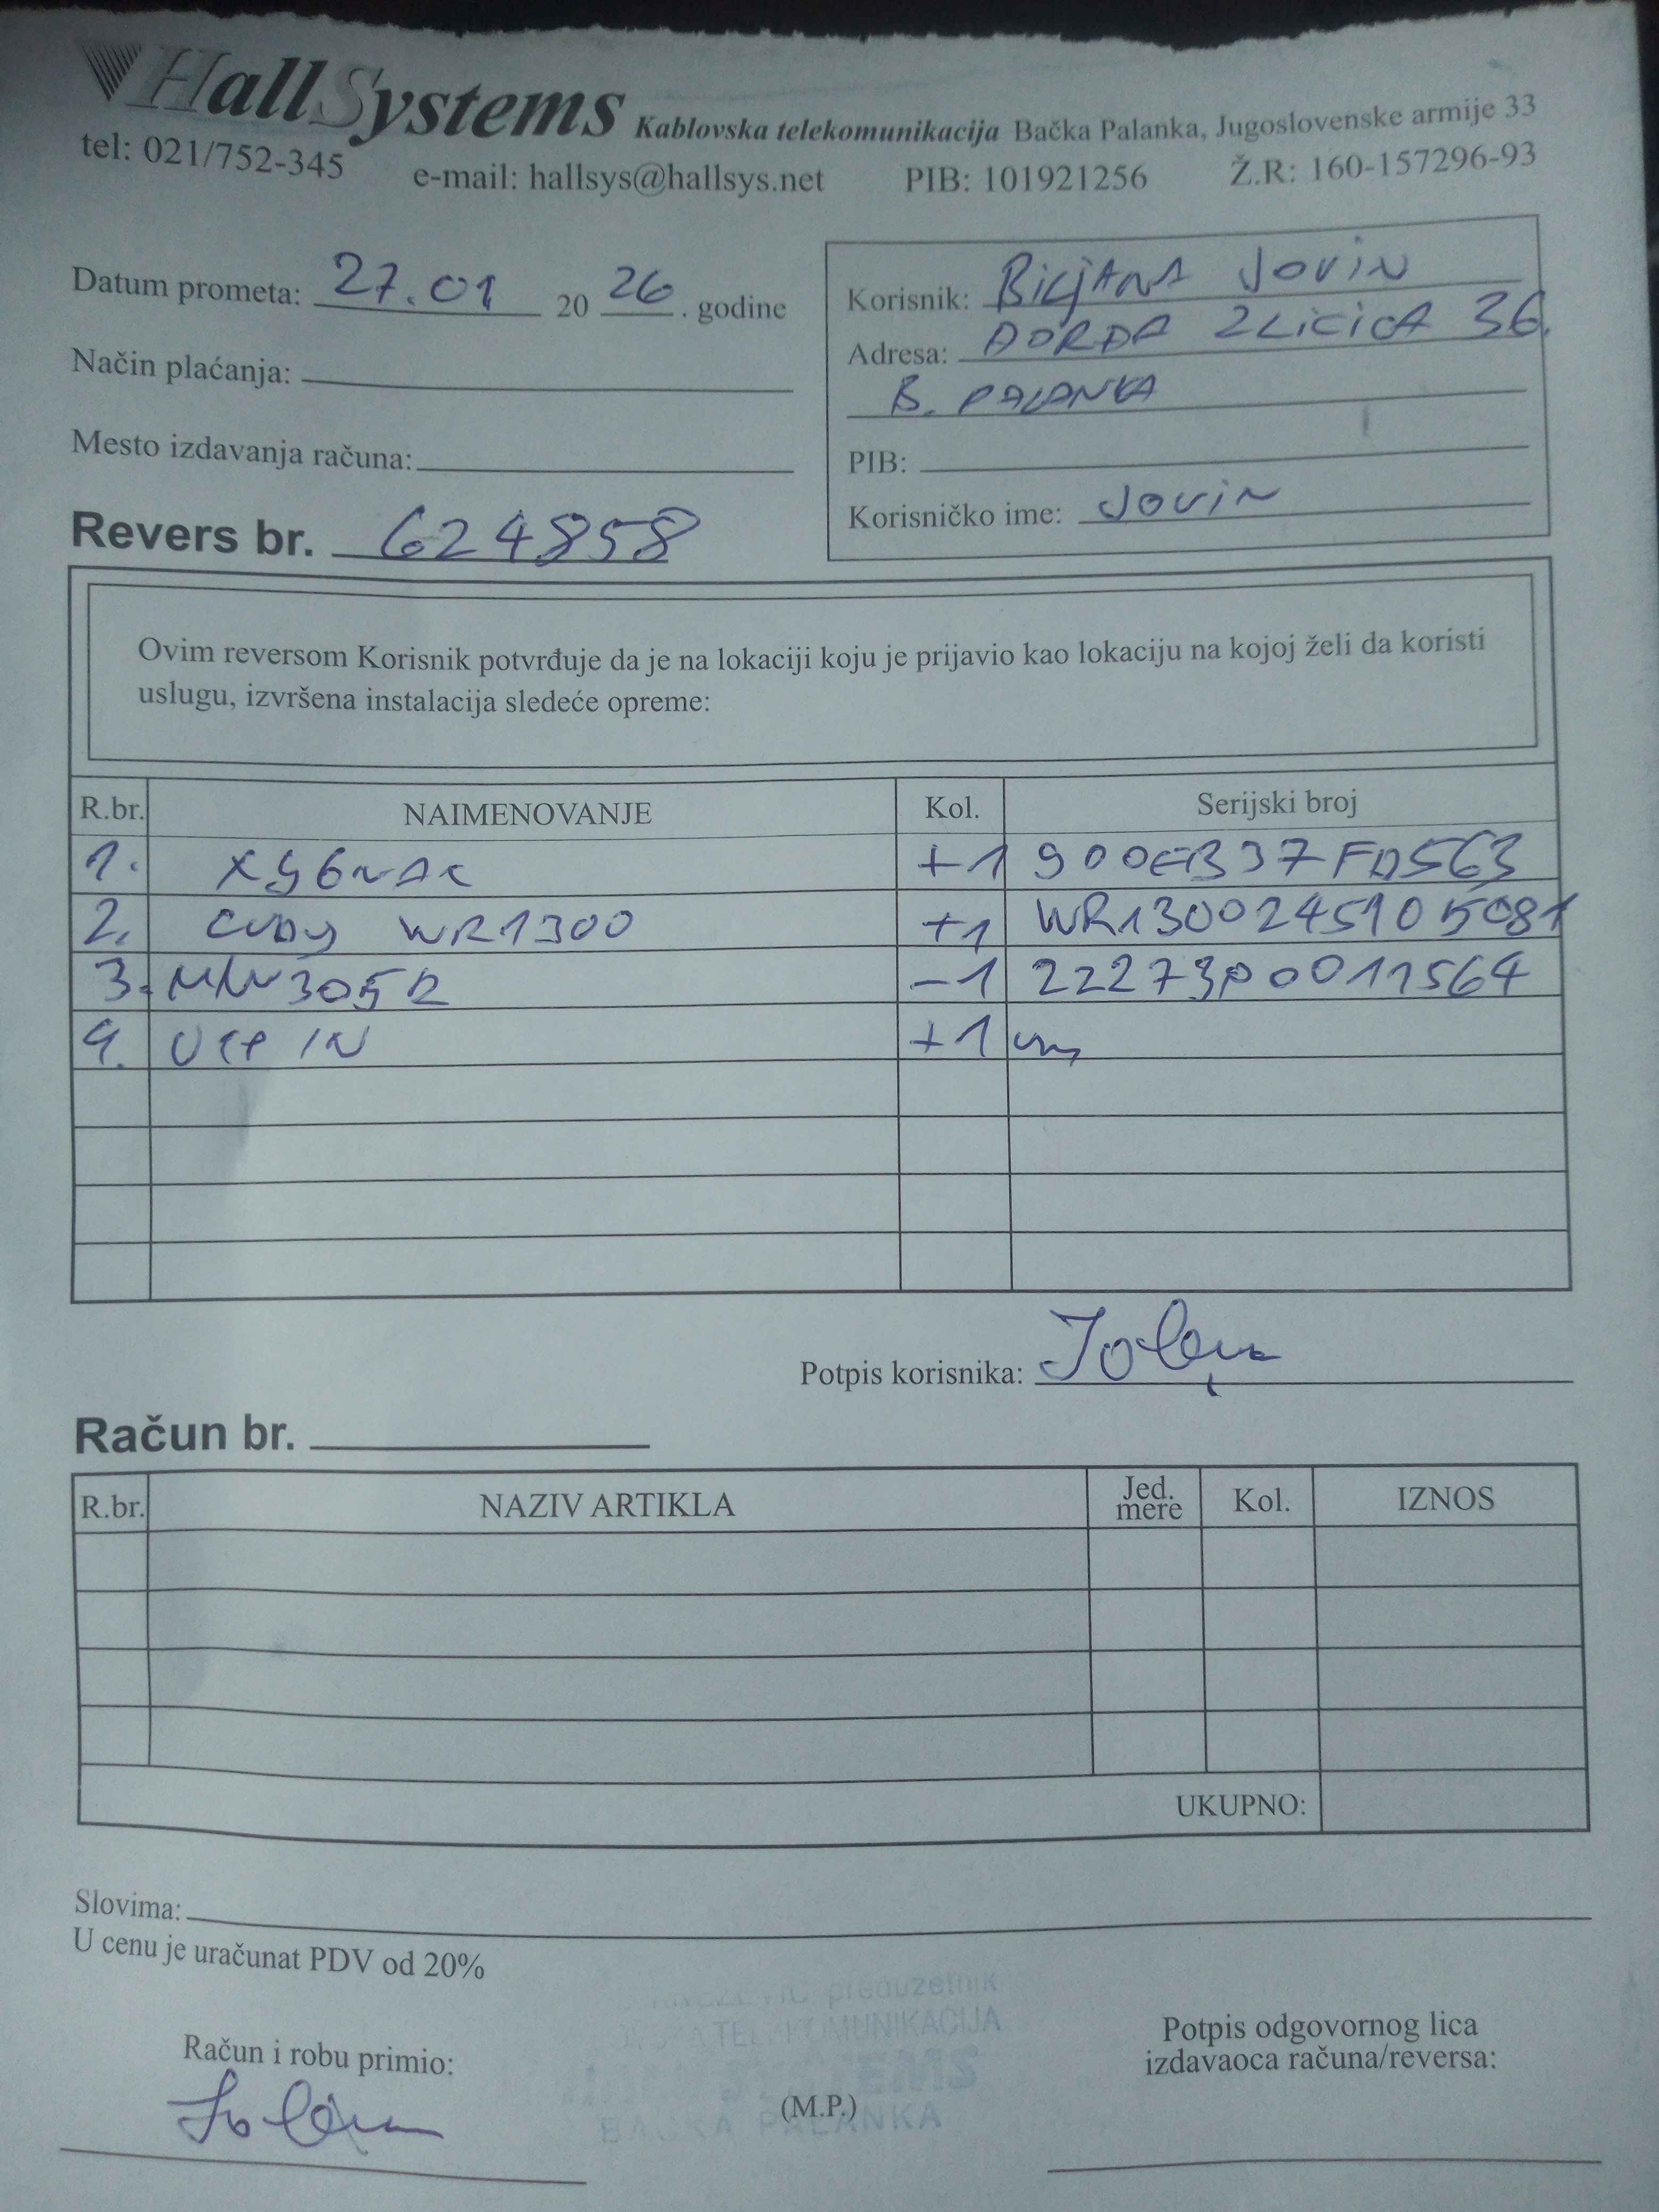 HallSystems Kablovska telekomunikacija Bačka Palanka, Jugoslovenske armije 33
tel: 021/752-345 e-mail: hallsys@hallsys.net PIB: 101921256 Ž.R: 160-157296-93
Datum prometa: 27.01 20 26 . godine
Način plaćanja:
Mesto izdavanja računa:
Revers br. 624858
Korisnik: BILJANA JOVIN
Adresa: ĐORĐA ZLICICA 36.
B. PALANKA
PIB:
Korisničko ime: JOVIN
Ovim reversom Korisnik potvrđuje da je na lokaciji koju je prijavio kao lokaciju na kojoj želi da koristi
uslugu, izvršena instalacija sledeće opreme:
R.br. NAIMENOVANJE Kol. Serijski broj
1. +1
2. CUDY WR1300 +1
3. -1
4. UTP IN +1
Potpis korisnika:
Račun br.
R.br. NAZIV ARTIKLA Jed. mere Kol. IZNOS
UKUPNO:
Slovima:
U cenu je uračunat PDV od 20%
preduzetnik
Račun i robu primio:
(M.P.)
BAČKA PALANKA
Potpis odgovornog lica
izdavaoca računa/reversa: